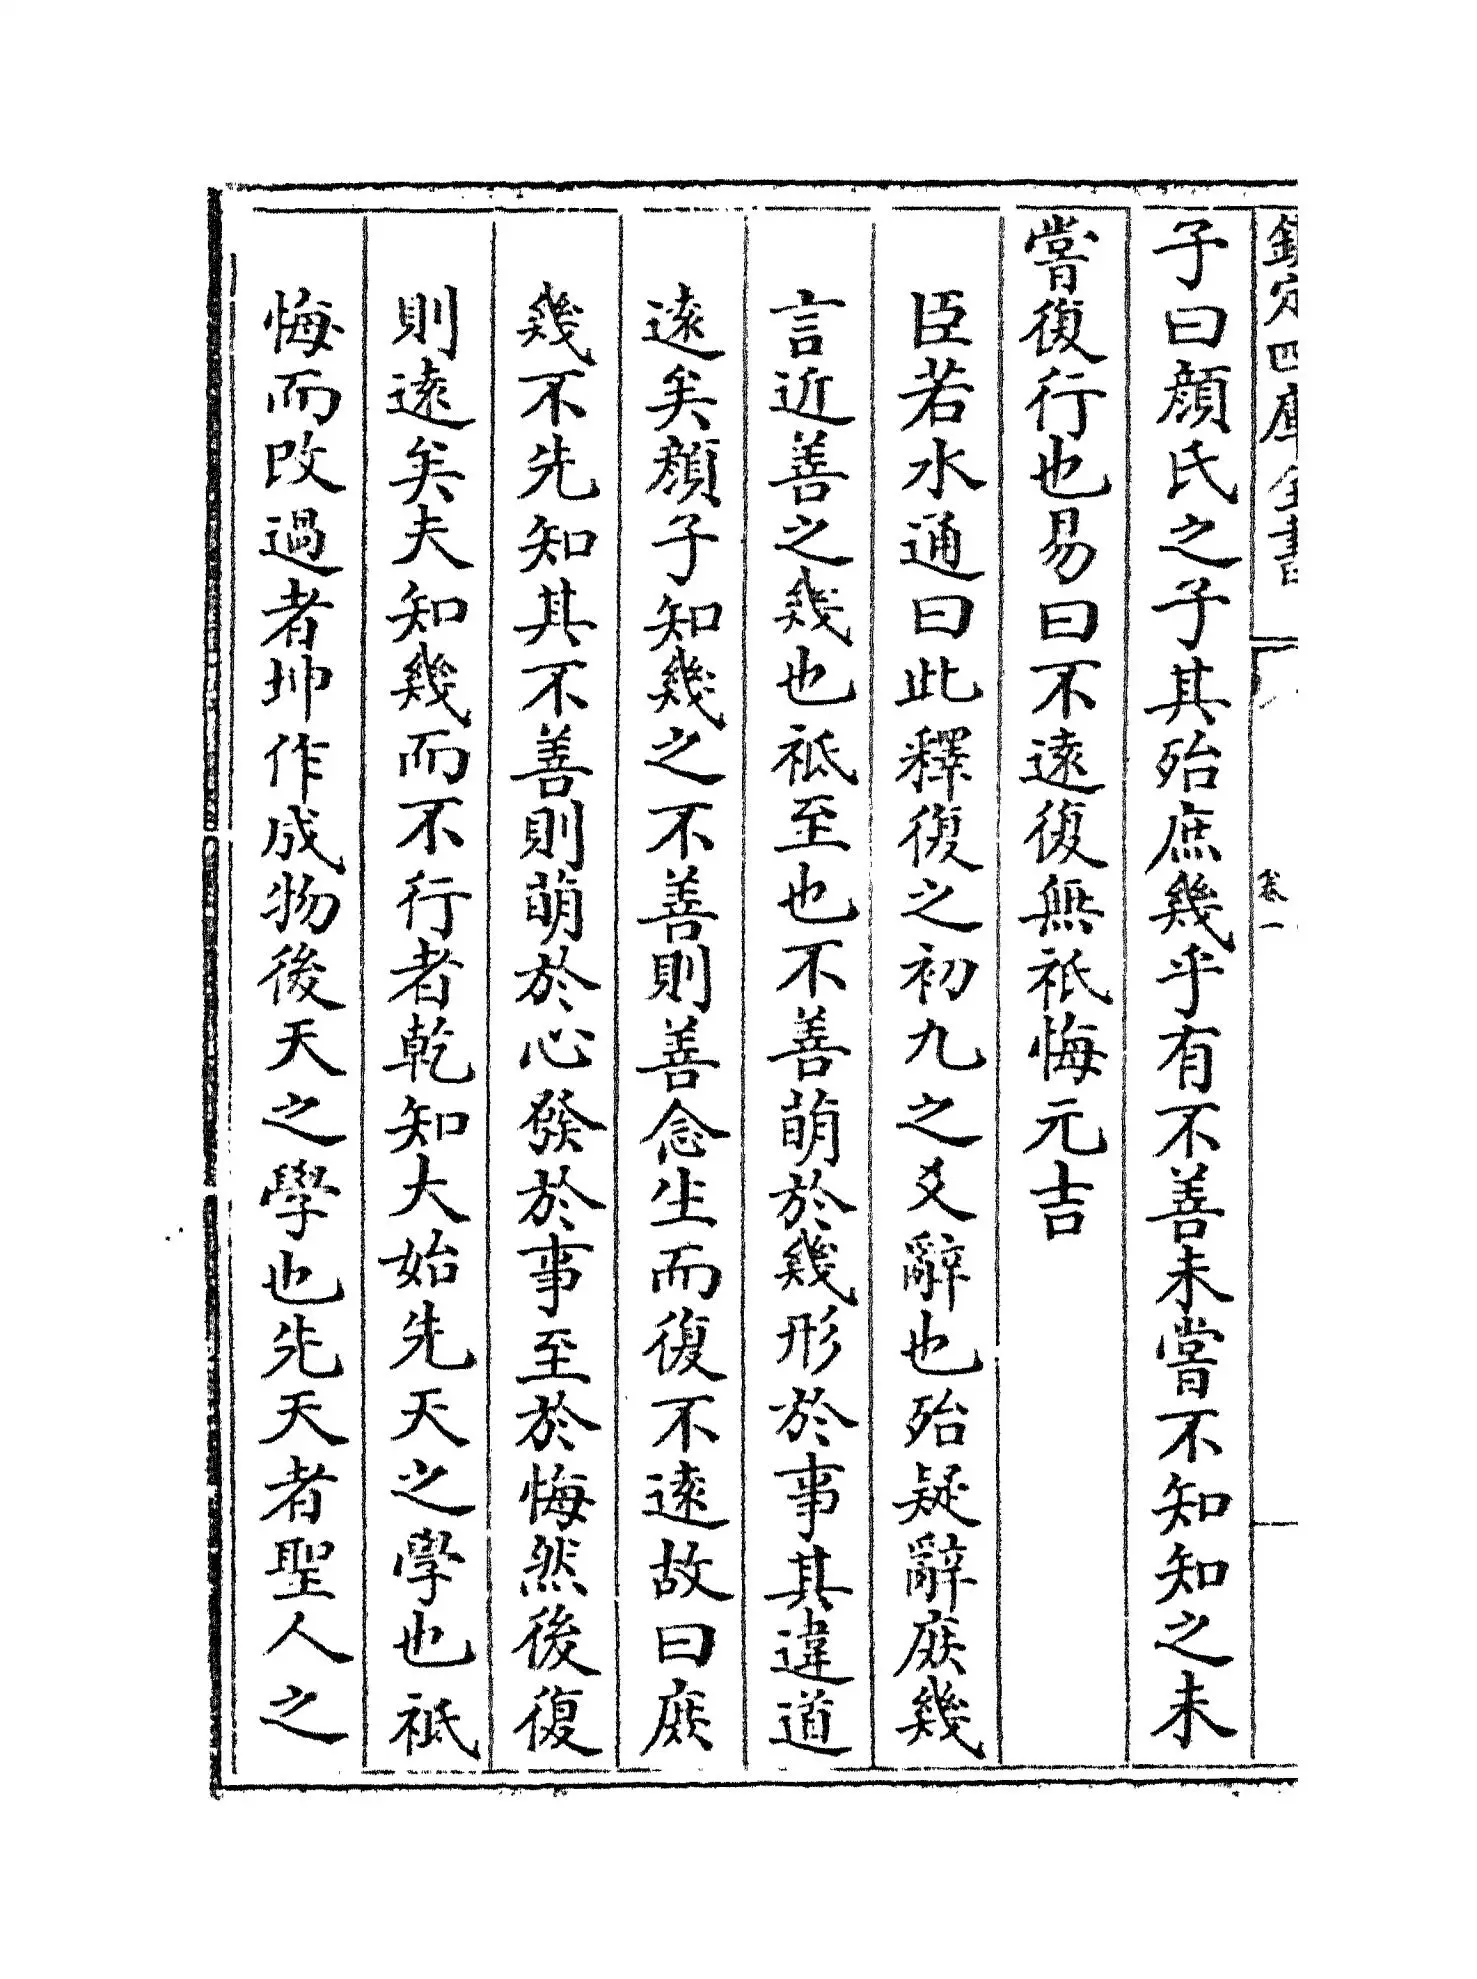 欽定四庫全書
卷一
子曰顔氏之子其殆庶幾乎有不善未嘗不知知之未
嘗復行也易曰不逺復無祇悔元吉
臣若水通曰此釋復之初九之爻辭也殆疑辭庻幾
言近善之幾也祗至也不善萌於幾形於事其違道
逺矣顔子知幾之不善則善念生而復不逺故曰庻
幾不先知其不善則萌於心發於事至於悔然後復
則逺矣夫知幾而不行者乾知大始先天之學也祗
悔而改過者坤作成物後天之學也先天者聖人之